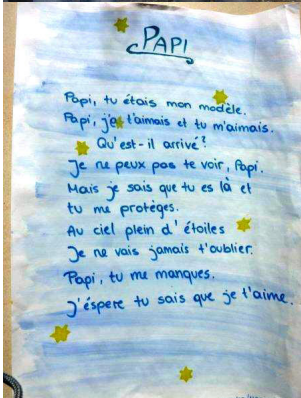 PAPI
Papi, tu étais mon modèle.
Papi, je t'aimais et tu m'aimais.
Qu'est-il arrivé?
Je ne peux pas te voir, Papi.
Mais je sais que tu es là et
tu me protèges.
Au ciel plein d'étoiles
Je ne vais jamais t'oublier.
Papi, tu me manques.
J'éspere tu sais que je t'aime.